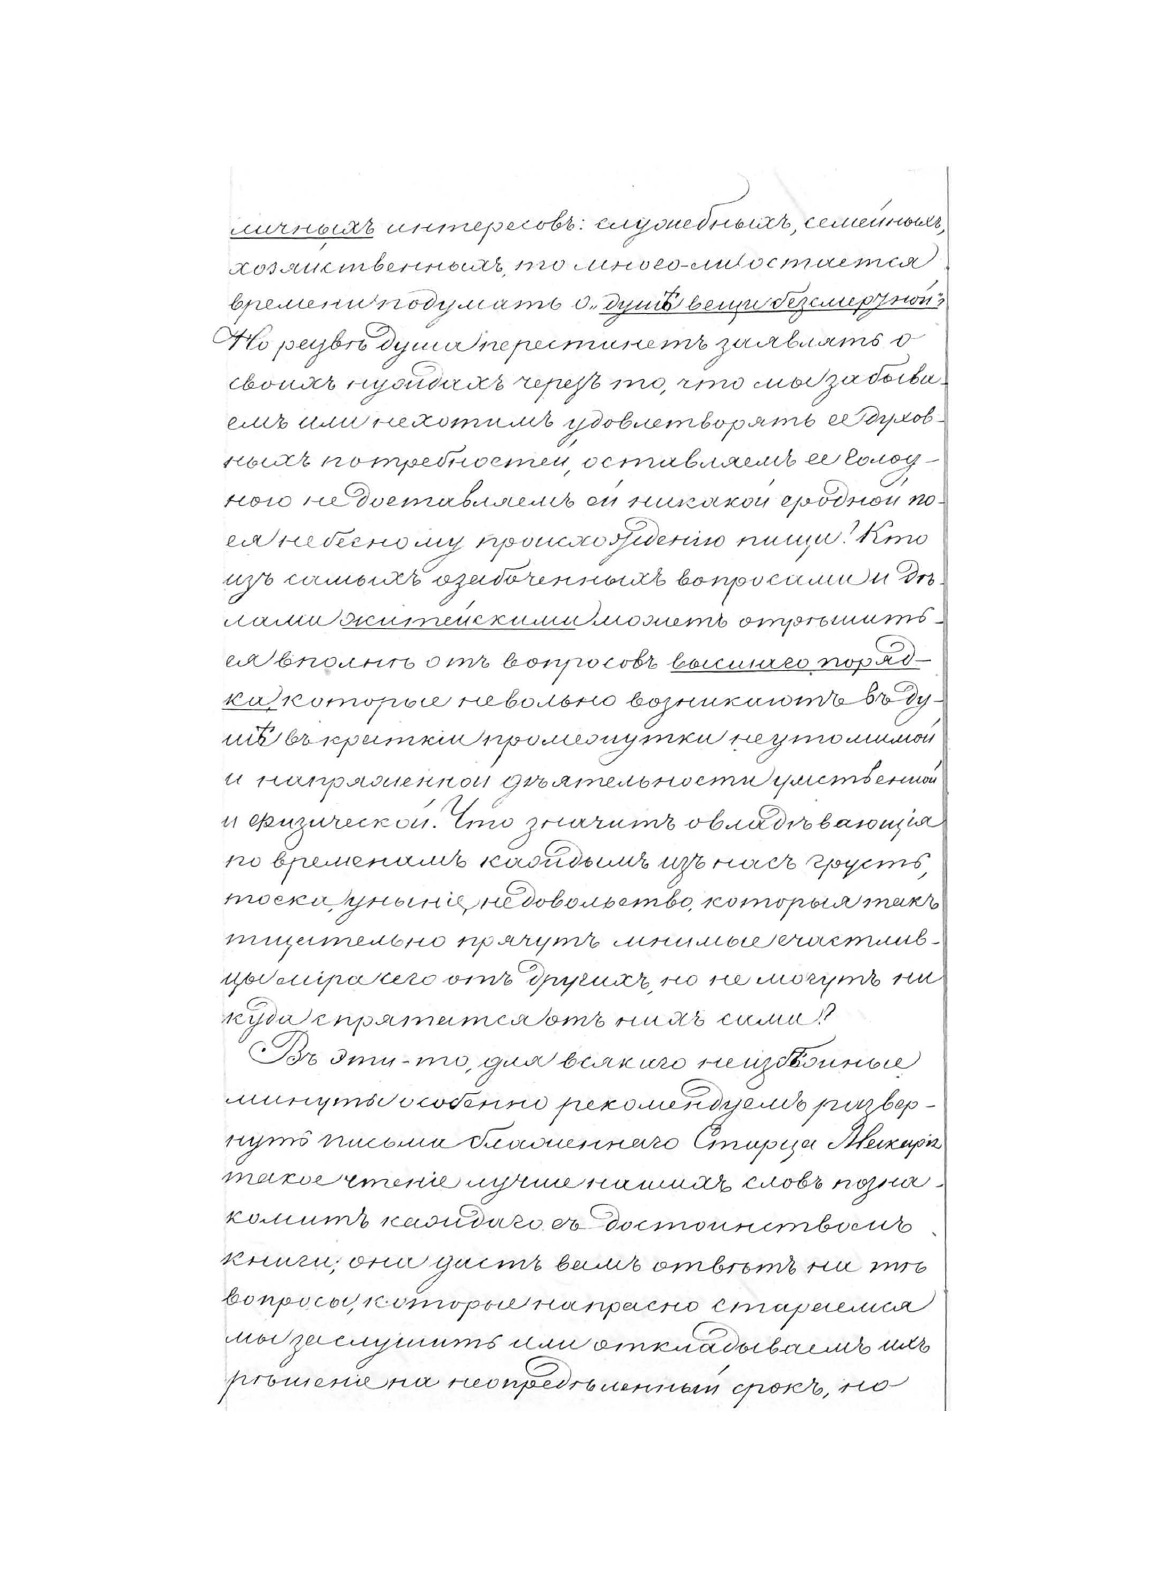 личныхъ интересовъ: служебныхъ, семейныхъ,
хозяйственныхъ, то много-ли остается
времени подумать о „душѣ вещи безсмертной“?
Но развѣ душа перестанетъ заявлять о
своихъ нуждахъ черезъ то, что мы забыва-
емъ или не хотимъ удовлетворять ее духов-
ныхъ потребностей, оставляемъ ее голод-
ною не доставляемъ ей никакой сродной по-
ея небесному происхожденію пищи? Кто
изъ самыхъ озабоченныхъ вопросами и дѣ-
лами житейскими можетъ отрѣшить-
ся вполнѣ отъ вопросовъ высшаго поряд-
ка, которые невольно возникаютъ въ ду-
шѣ въ краткіи промежутки неутомимой
и напряженной дѣятельности умственной
и физической. Что значитъ овладѣвающія
по временамъ каждымъ изъ насъ грусть,
тоска, уныніе, недовольство, которыя такъ
тщательно прячутъ мнимые счастлив-
цы міра сего отъ другихъ, но не могутъ ни
куда спрятатся отъ нихъ сами?
Въ эти-то, для всякаго неизбѣжные
минуты особенно рекомендуемъ развер-
нуть письма блаженнаго Старца Макарія
такое чтеніе лучше нашихъ словъ позна-
комитъ каждаго съ достоинствомъ
книги; она дастъ вамъ отвѣтъ на тѣ
вопросы, которые напрасно стараемся
мы заглушить или откладываемъ ихъ
рѣшеніе на неопредѣленный срокъ, но